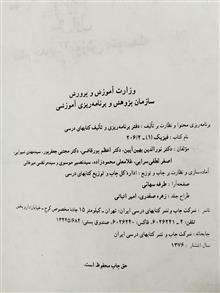 وزارت آموزش و پرورش
سازمان پژوهش و برنامه‌ریزی آموزشی
برنامه‌ریزی محتوا و نظارت بر تألیف: دفتر برنامه‌ریزی و تألیف کتابهای درسی
نام کتاب: فیزیک (۱) ـ ۲۰۶/۲
مؤلفان: دکتر نورالدین بهین‌آیین، دکتر اعظم پورقاضی، دکتر مجتبی جعفرپور، سیدمهدی شیوایی،
اصغر لطفی‌سرابی، غلامعلی محمودزاده، سیدتقصیر موسوی و سیدمرتضی میرخانی
آماده‌سازی و نظارت بر چاپ و توزیع: اداره کل چاپ و توزیع کتابهای درسی
صفحه‌آرا: طرفه سهائی
طراح جلد: زهره صفدری، امیر اثباتی
ناشر: شرکت چاپ و نشر کتابهای درسی ایران: تهران ـ کیلومتر ۱۵ جاده مخصوص کرج ـ خیابان داروپخش
تلفن: ۶۰۲۶۲۴۱ ـ ۲، فاکس: ۶۰۲۶۲۴۰، صندوق پستی: ۱۳۴۴۵/۶۸۴
چاپخانه: شرکت چاپ و نشر کتابهای درسی ایران
سال انتشار: ۱۳۷۶
حق چاپ محفوظ است.